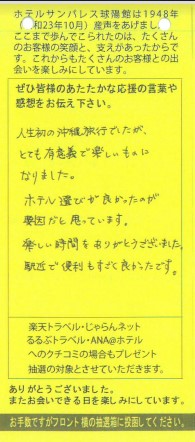 ホテルサンパレス球陽館は1948年
(昭和23年10月)産声をあげまし
ここまで歩んでこられたのは、たくさん
のお客様の笑顔と、支えがあったからで
す。これからもたくさんのお客様との出
会いを楽しみにしています。
ぜひ皆様のあたたかな応援の言葉や
感想をお伝え下さい。
人生初の沖縄旅行でしたが、
とても有意義で楽しいものに
なりました。
ホテル選びが良かったのが
要因かと思っています。
楽しい時間をありがとうございました。
駅近で便利もすごく良かったです。
楽天トラベル・じゃらんネット
るるぶトラベル・ANA@ホテル
へのクチコミの場合もプレゼント
抽選の対象とさせていただきます。
ありがとうございました。
またお会いできる日を楽しみにしています。
お手数ですがフロント横の抽選箱に投函してください。